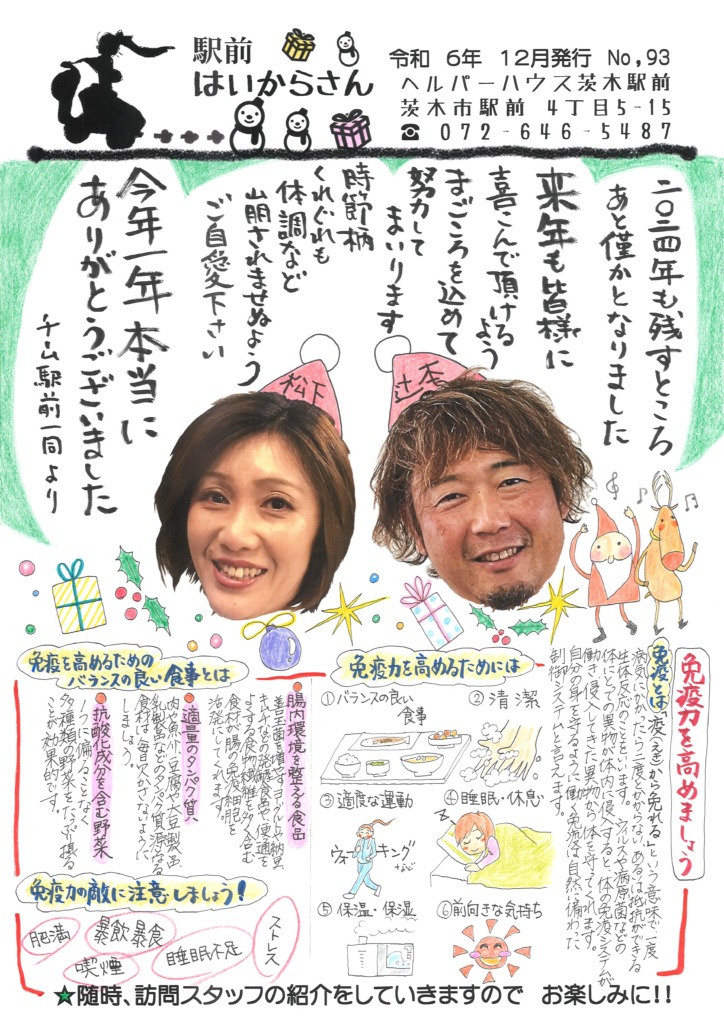 駅前
はいからさん
令和 6年 12月発行 No,93
ヘルパーハウス茨木駅前
茨木市駅前 4丁目5-15
☎ 072-646-5487
二〇二四年も残すところ
あと僅かとなりました
来年も皆様に
喜こんで頂けるよう
まごころを込めて
努力して
まいります
時節柄
くれぐれも
体調など
崩されませぬよう
ご自愛下さい
今年一年本当に
ありがとうございました
チーム駅前一同より
松下
辻本
免疫力を高めましょう
免疫とは
「疫(えき)から免れる」という意味で一度
病気にかかったら二度とかからない、あるいは抵抗ができる
生体反応のことをいいます。ウイルスや病原菌などの
体にとっての異物が体内に侵入すると、体の免疫システムが
働き、侵入してきた異物から体を守ってくれます。
自分の身を守るように働く免疫は自然に備わった
制御システムと言えます。
免疫力を高めるためには
①バランスの良い
食事
②清潔
③適度な運動
ウォーキング
など
④睡眠・休息
⑤保温・保湿
⑥前向きな気持ち
免疫を高めるための
バランスの良い食事とは
●腸内環境を整える食品
善玉菌を増やすヨーグルトや納豆、
キムチなどの発酵食品や便通を
よくする食物繊維を多く含む
食材が腸の免疫細胞を
活発にしてくれます。
●適量のタンパク質
肉や魚、卵、豆腐や大豆製品、
乳製品などのタンパク質源となる
食材は毎日欠かさないように
しましょう。
●抗酸化成分を含む野菜
1つに偏ることなく
多種類の野菜をたっぷり摂る
ことが効果的です。
免疫力の敵に注意しましょう!
肥満
暴飲暴食
喫煙
睡眠不足
ストレス
★随時、訪問スタッフの紹介をしていきますので お楽しみに!!